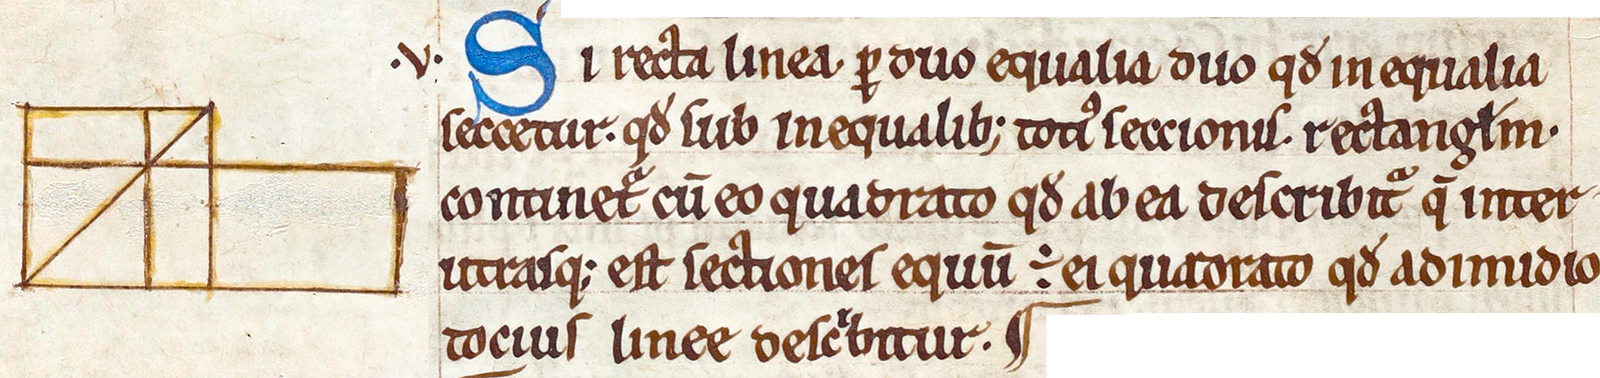 ·v· Si recta linea· ꝑ duo equalia duo qđ inequalia
seccetur· qđ sub inequalib; totiꝰ seccionis· rectangłm·
continetᵃ cū eo quadrato qđ ab ea describitᵃ q̄ inter-
utrasq; est sectiones equū ÷ ei quadrato qđ a dimidio
tocius linee descⁱbitur· ¶